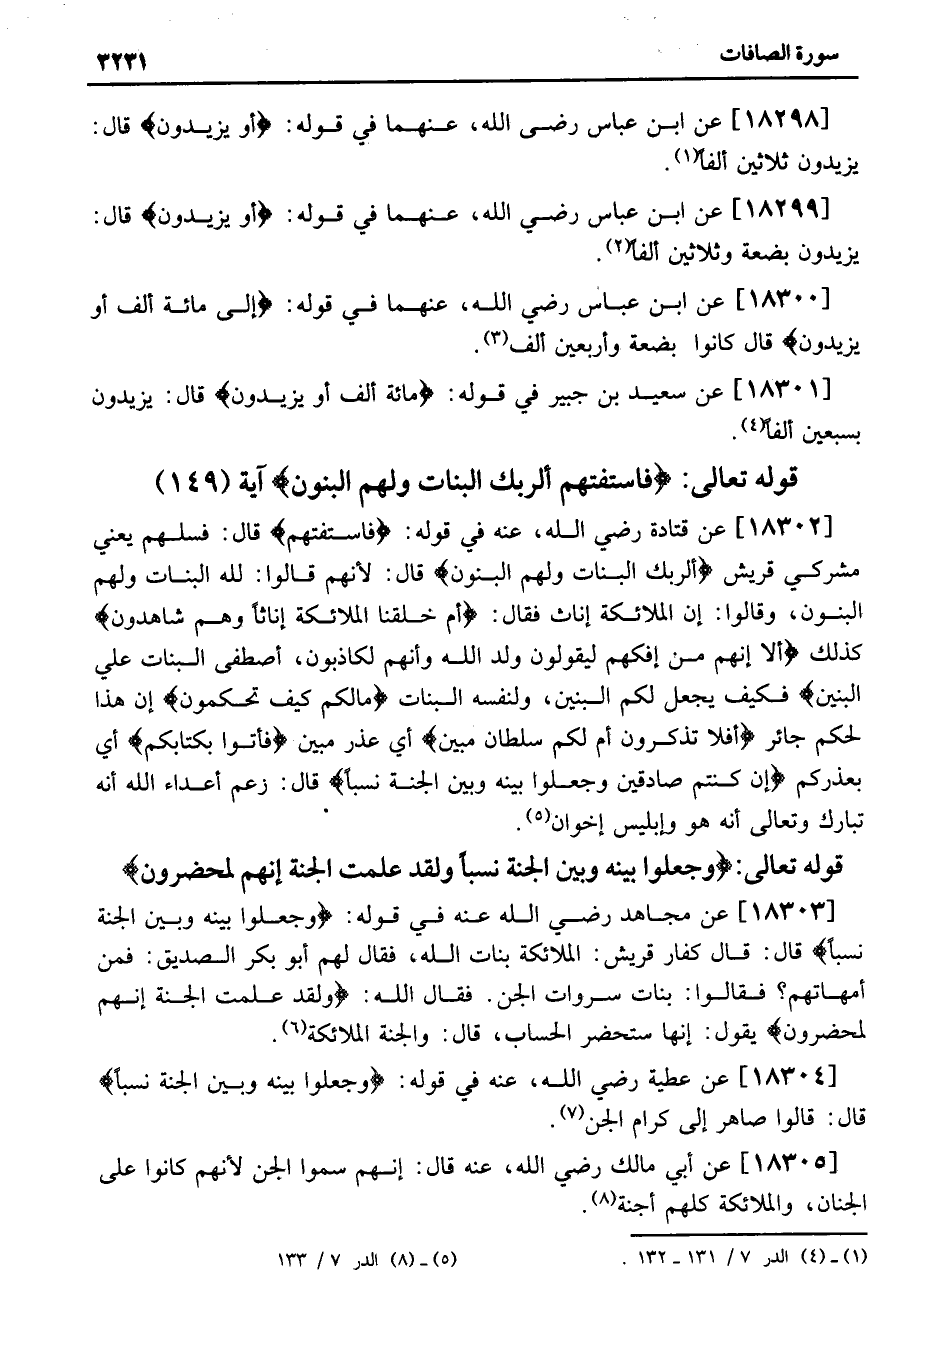 سورة الصافات ٣٢٣١
[١٨٢٩٨] عن ابن عباس رضى الله، عنهما في قوله: ﴿أو يزيدون﴾ قال:
يزيدون ثلاثين ألفاً(١).
[١٨٢٩٩] عن ابن عباس رضي الله، عنهما في قوله: ﴿أو يزيدون﴾ قال:
يزيدون بضعة وثلاثين ألفاً(٢).
[١٨٣٠٠] عن ابن عباس رضي الله، عنهما في قوله: ﴿إلى مائة ألف أو
يزيدون﴾ قال كانوا بضعة وأربعين ألف(٣).
[١٨٣٠١] عن سعيد بن جبير في قوله: ﴿مائة ألف أو يزيدون﴾ قال: يزيدون
بسبعين ألفاً(٤).
قوله تعالى: ﴿فاستفتهم ألربك البنات ولهم البنون﴾ آية (١٤٩)
[١٨٣٠٢] عن قتادة رضي الله، عنه في قوله: ﴿فاستفتهم﴾ قال: فسلهم يعني
مشركي قريش ﴿ألربك البنات ولهم البنون﴾ قال: لأنهم قالوا: لله البنات ولهم
البنون، وقالوا: إن الملائكة إناث فقال: ﴿أم خلقنا الملائكة إناثاً وهم شاهدون﴾
كذلك ﴿ألا إنهم من إفكهم ليقولون ولد الله وأنهم لكاذبون، أصطفى البنات علي
البنين﴾ فكيف يجعل لكم البنين، ولنفسه البنات ﴿مالكم كيف تحكمون﴾ إن هذا
لحكم جائر ﴿أفلا تذكرون أم لكم سلطان مبين﴾ أي عذر مبين ﴿فأتوا بكتابكم﴾ أي
بعذركم ﴿إن كنتم صادقين وجعلوا بينه وبين الجنة نسباً﴾ قال: زعم أعداء الله أنه
تبارك وتعالى أنه هو وإبليس إخوان(٥).
قوله تعالى:﴿وجعلوا بينه وبين الجنة نسباً ولقد علمت الجنة إنهم لمحضرون﴾
[١٨٣٠٣] عن مجاهد رضي الله عنه في قوله: ﴿وجعلوا بينه وبين الجنة
نسباً﴾ قال: قال كفار قريش: الملائكة بنات الله، فقال لهم أبو بكر الصديق: فمن
أمهاتهم؟ فقالوا: بنات سروات الجن. فقال الله: ﴿ولقد علمت الجنة إنهم
لمحضرون﴾ يقول: إنها ستحضر الحساب، قال: والجنة الملائكة(٦).
[١٨٣٠٤] عن عطية رضي الله، عنه في قوله: ﴿وجعلوا بينه وبين الجنة نسباً﴾
قال: قالوا صاهر إلى كرام الجن(٧).
[١٨٣٠٥] عن أبي مالك رضي الله، عنه قال: إنهم سموا الجن لأنهم كانوا على
الجنان، والملائكة كلهم أجنة(٨).
(١)-(٤) الدر ٧/ ١٣١ - ١٣٢ . (٥)-(٨) الدر ٧/ ١٣٣